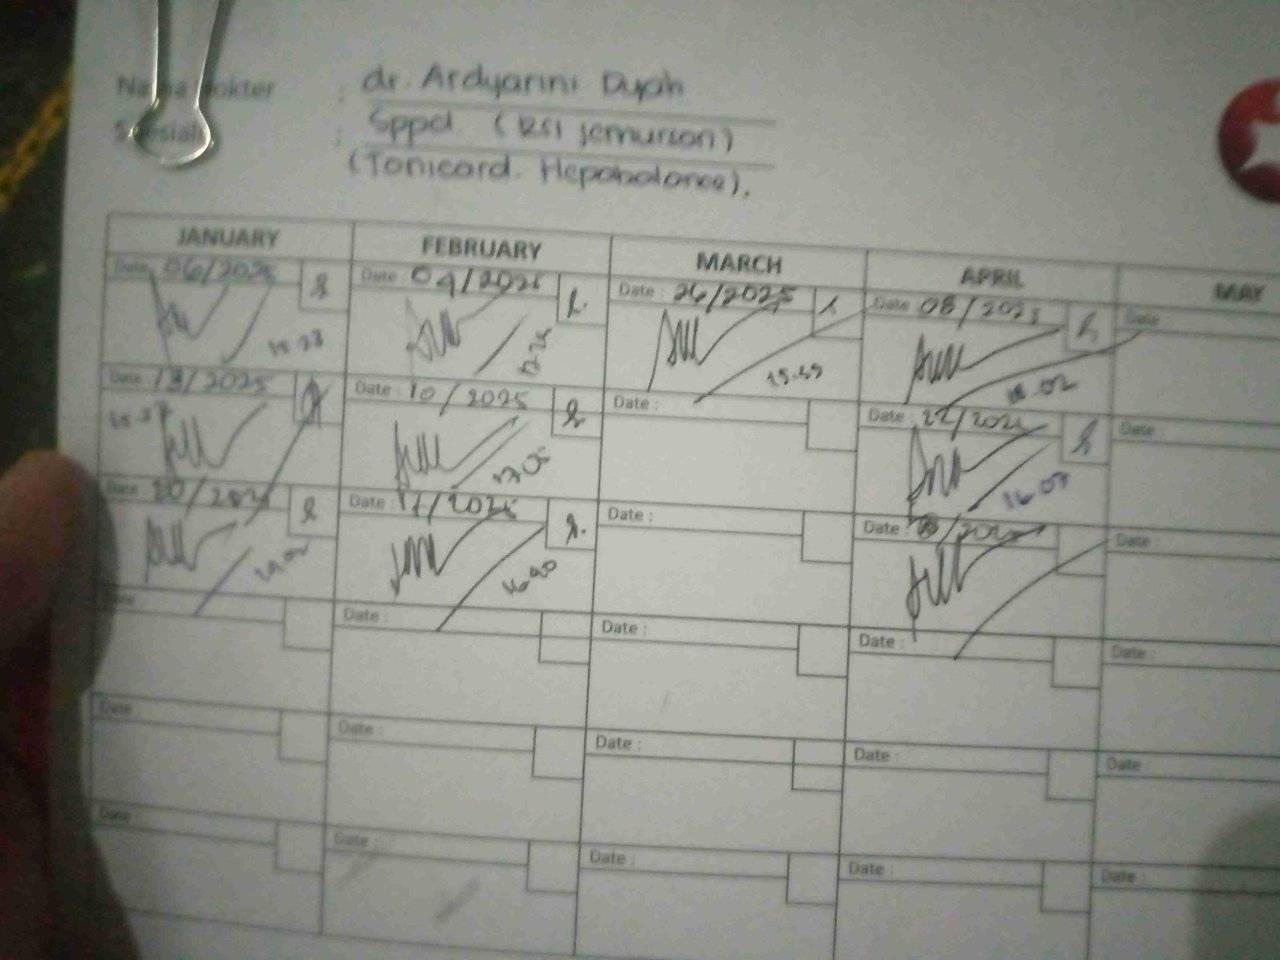 Nama Dokter : dr. Ardyarini Dyah
Spesialis : Sppd (RSI jemurson)
(Tonicard. Hepabalance).
JANUARY FEBRUARY MARCH APRIL MAY
Date 06/2025 Date : 04/2025 Date : 26/2025 Date 08/2025 Date
15.49 18.02
Date 13/2025 Date : 10/2025 Date : Date 22/2025 Date :
13.05 16.07
Date 20/2025 Date : 17/2025 Date : Date /2025 Date :
16.40
Date : Date : Date : Date : Date :
Date Date : Date : Date : Date :
Date Date : Date : Date : Date :